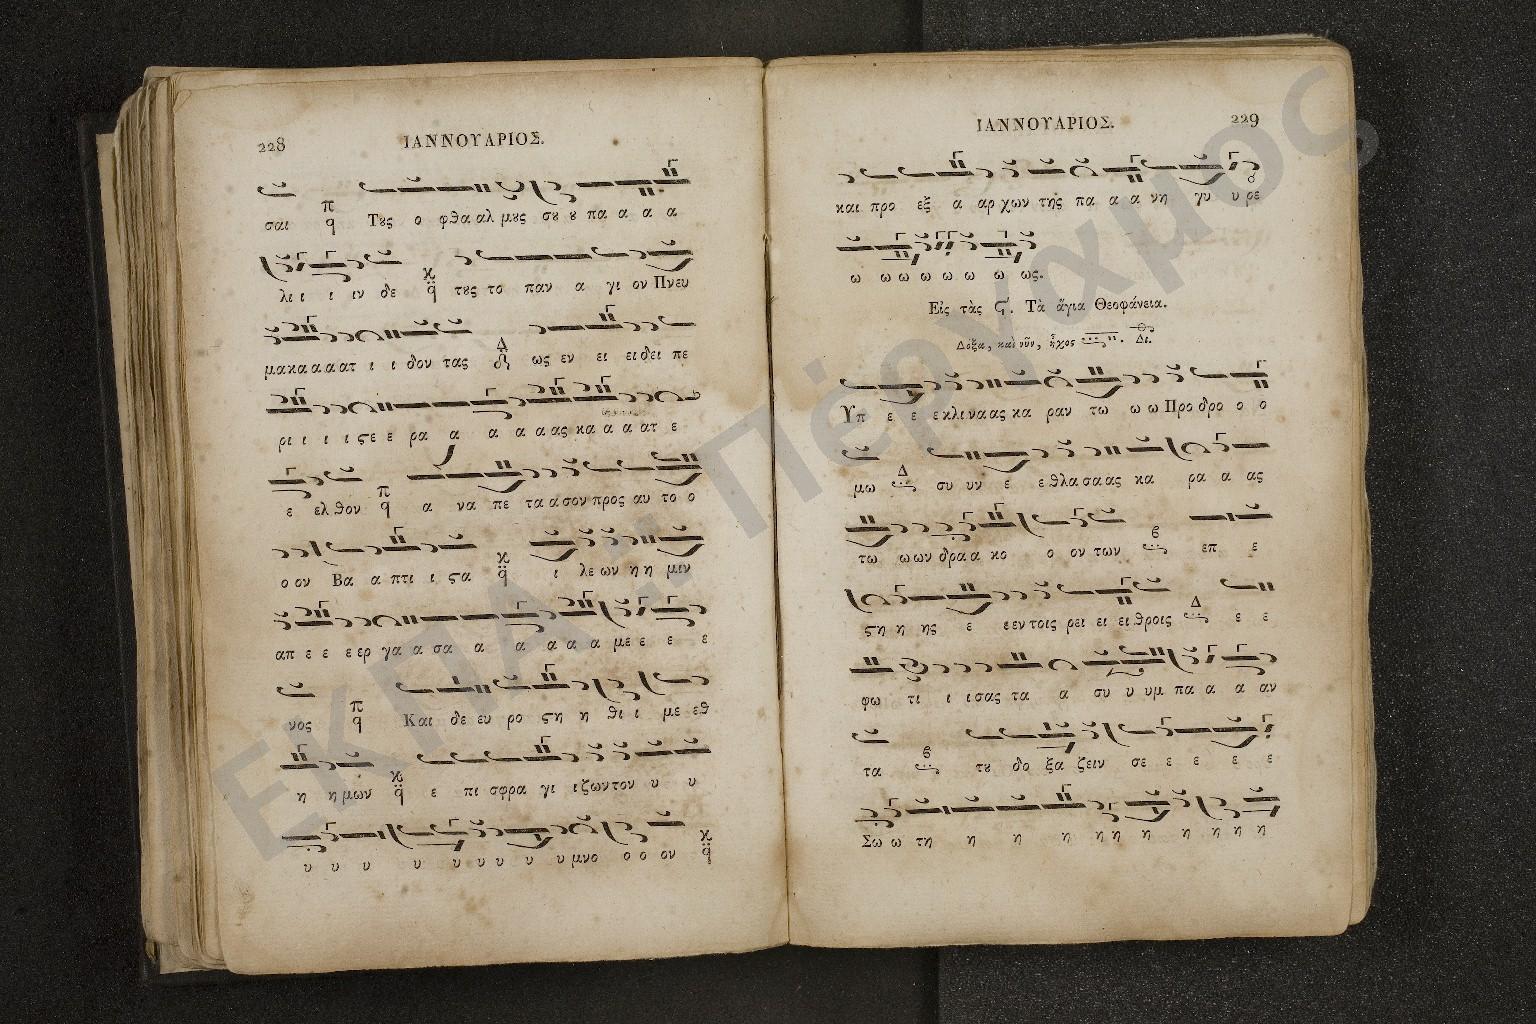 228
ΙΑΝΝΟΥΑΡΙΟΣ.
σαι π q Τȣς ο φθα αλ μȣς σȣ ȣ πα α α α
λει ι ι ιν δε κ q τȣς το παν α γι ον Πνευ
μα κα α α ατ ι ι δον τας Δ ως εν ει ει δει πε
ρι ι ι ι ςε ε ρα α α α α ας κα α α ατ ε
ε ελ θον π q α να πε τα α σον προς αυ το ο
ο ον Βα α πτι ι ςα κ q ι λε ων η η μιν
απ ε ε ε ερ γα α σα α α α α α με ε ε ε
νος π q Και δε ευ ρο ςη η θι ι με εθ
η η μων κ q ε πι σφρα γι ι ζων τον υ υ
υ υ υ υ υ υ υ υ υ μνο ο ο ον κ q
ΙΑΝΝΟΥΑΡΙΟΣ.
229
και προ εξ α αρ χων της πα α α νη γυ υ ρε
ω ω ω ω ω ω ω ως.
Εἰς τὰς ϛ'. Τὰ ἅγια Θεοφάνεια.
Δόξα, καὶ νῦν, ἦχος Δι.
Υπ ε ε ε κλι να ας κα ραν τω ω ω Προ δρο ο ο
μω Δ συ υν ε ε θλα σα ας κα ρα α ας
τω ω ων δρα α κο ο ον των β επ ε
ςη η ης ε ε εν τοις ρει ει ει θροις Δ ε ε
φω τι ι ι σας τα α συ υ υμ πα α α αν
τα β τȣ δο ξα ζειν σε ε ε ε ε
Σω ω τη η η η η η η η η η